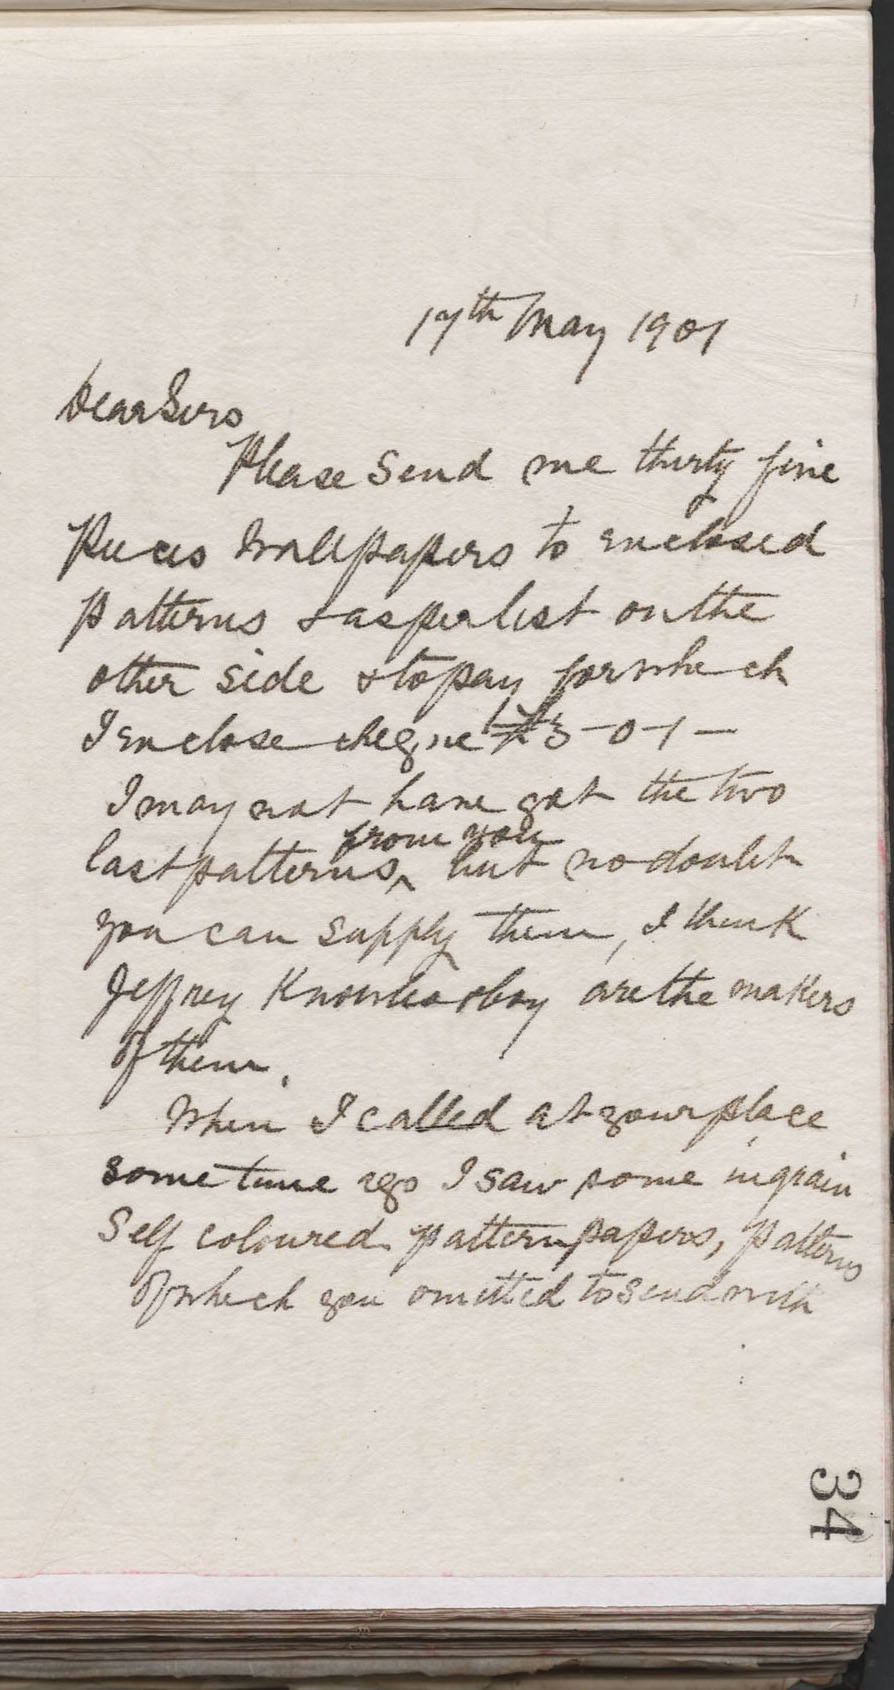 17th May 1901
Dear Sirs
Please send me thirty five
Pieces Wallpapers to enclosed
patterns & as per list on the
other side & to pay for which
I enclose cheque £3-0-1-
I may not have got the two
from you
last patterns, but no doubt
you can supply them, I think
Jeffrey are the makers
of them.
When I called at your place
some time ago I saw some ingrain
Self coloured pattern papers, patterns
of which you omitted to send with
34